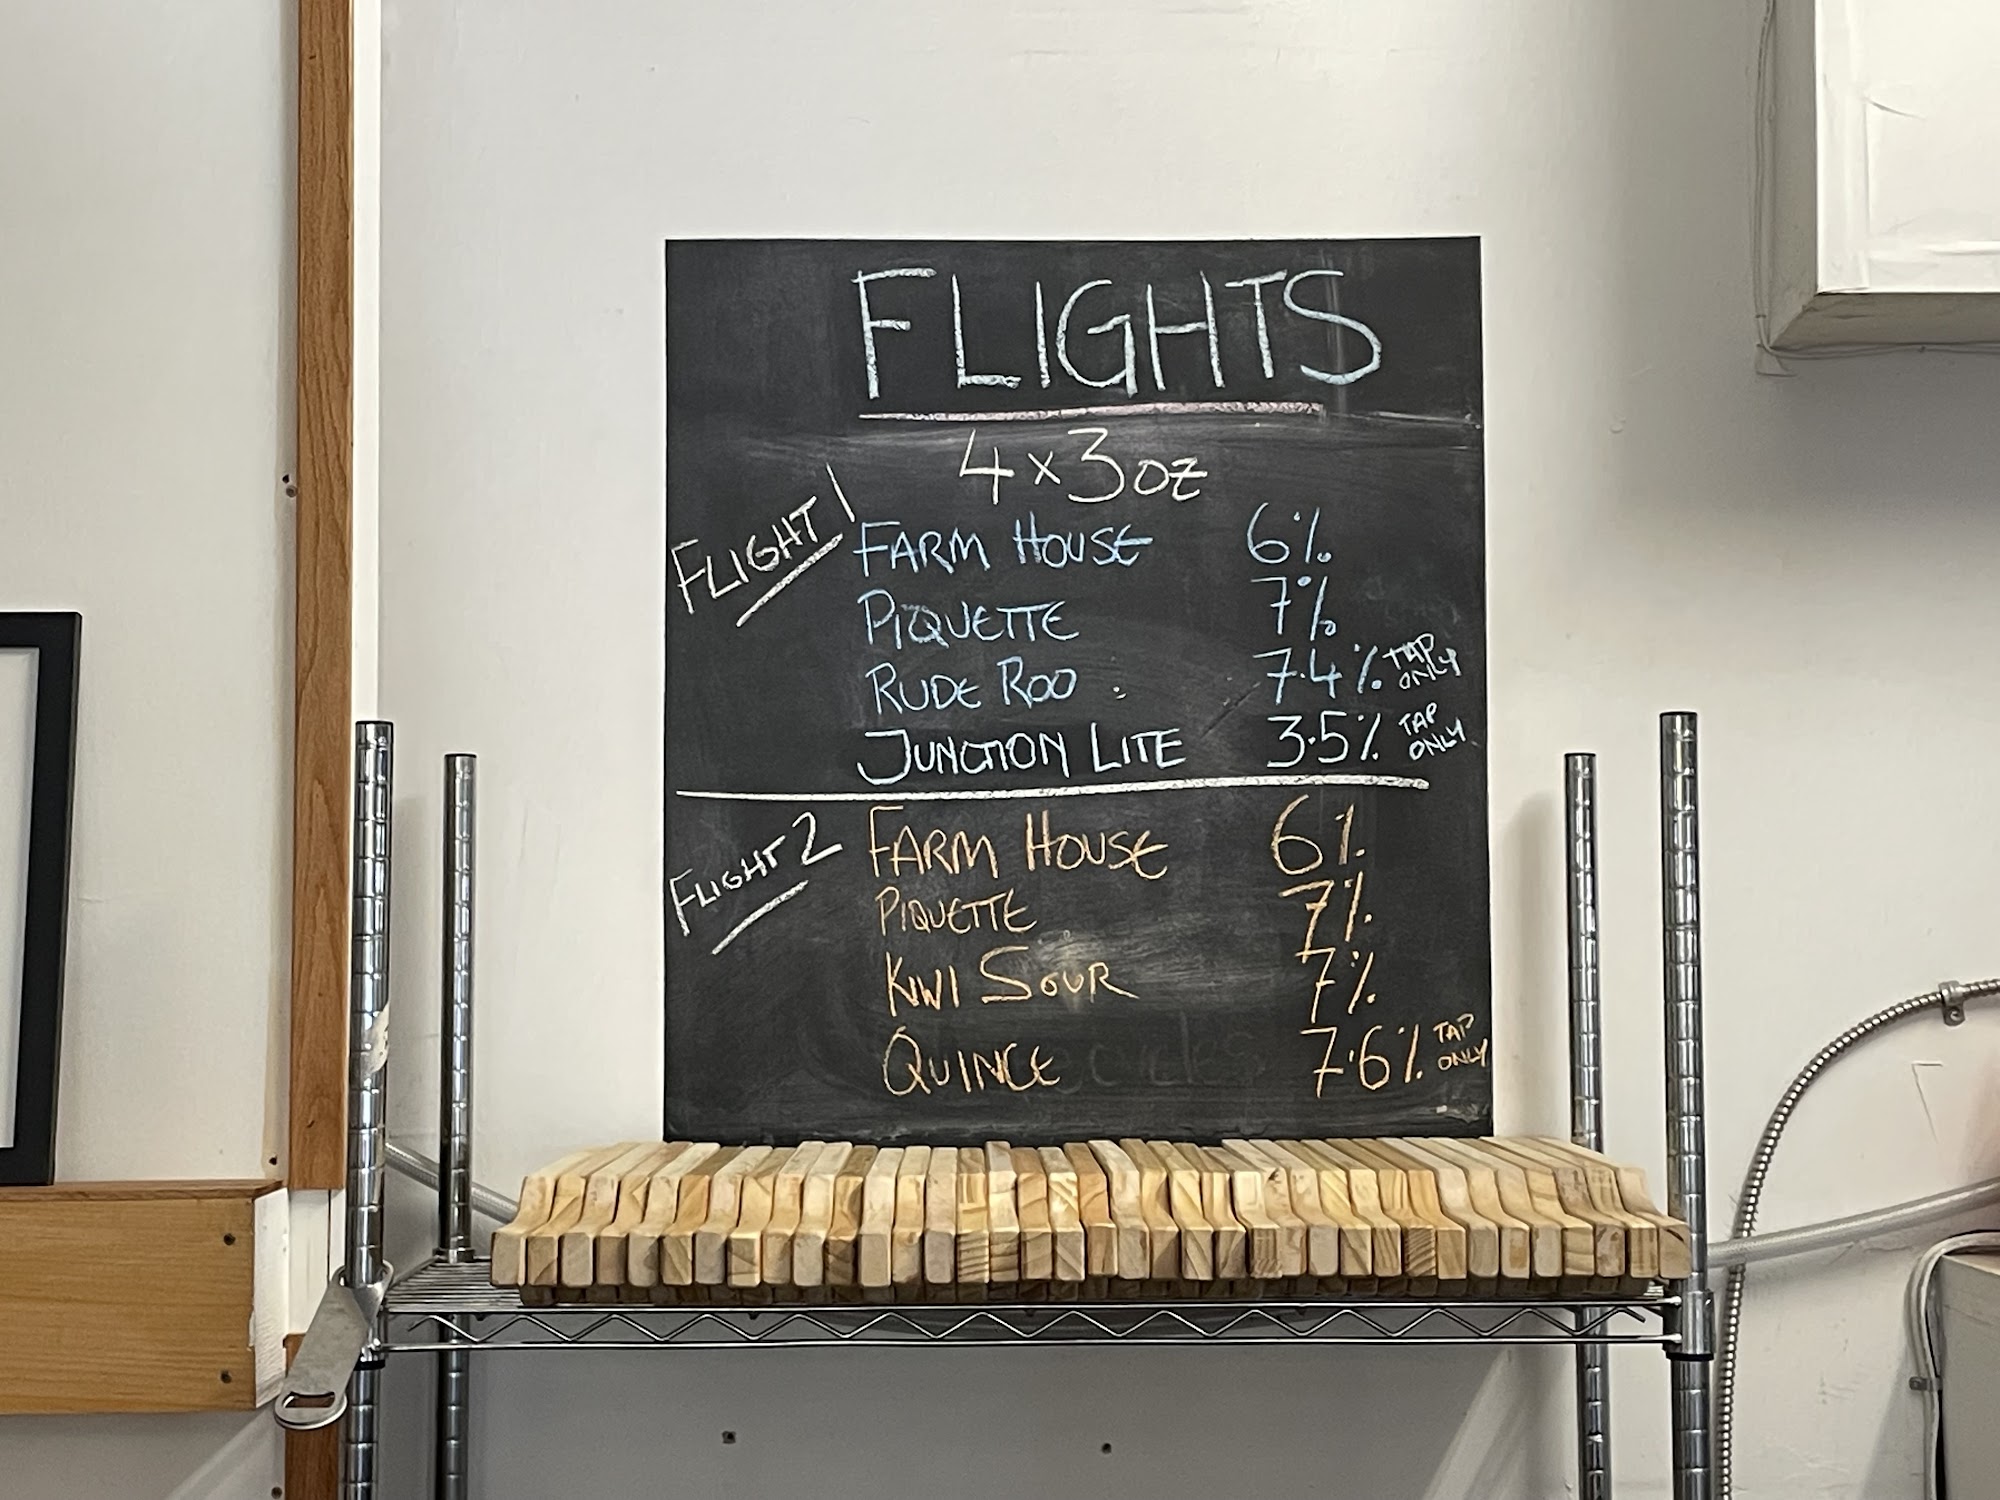 FLIGHTS
4x3oz
FLIGHT 1
FARM HOUSE 6%
PIQUETTE 7%
RUDE ROO 7.4% TAP ONLY
JUNCTION LITE 3.5% TAP ONLY
FLIGHT 2
FARM HOUSE 6%
PIQUETTE 7%
KIWI SOUR 7%
QUINCE 7.6% TAP ONLY